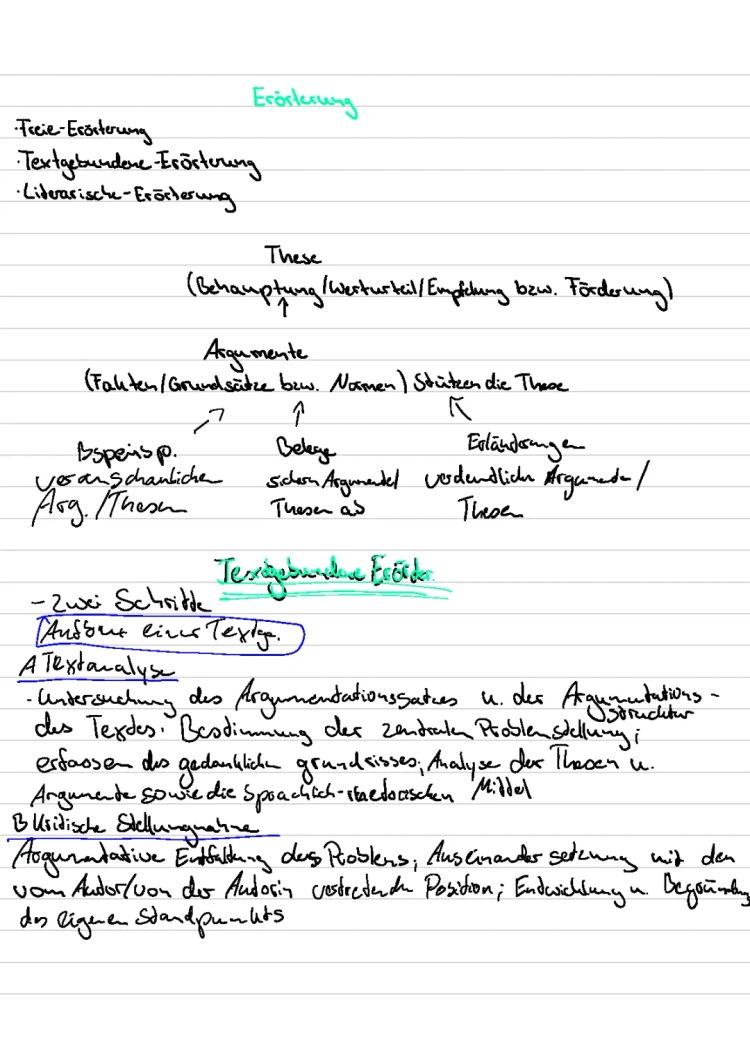 Erörterung
·Freie-Erörterung
·Textgebundene-Erörterung
·Literarische-Erörterung
These
(Behauptung/Werturteil/Empfehlung bzw. Förderung)
Argumente
(Fakten/Grundsätze bzw. Normen) Stützen die These
Belege
Erläuterungen
veranschaulichen sichern Argumente/ verdeutlichen Argumente/
Arg./Thesen Thesen ab Thesen
Textgebundene Erörter.
- zwei Schritte
Aufbau einer Textge.
A Textanalyse
- Untersuchung des Argumentationssatzes u. der Argumentations-
struktur
des Textes. Bestimmung der zentralen Problemstellung;
erfassen des gedanklichen grundrisses; Analyse der Thesen u.
Argumente sowie die Sprachlich-rhetorischen Mittel
B Kritische Stellungnahme
Argumentative Entfaltung des Problems; Auseinandersetzung mit den
vom Autor/von der Autorin vertretenden Position; Entwicklung u. Begründung
des eigenen Standpunkts